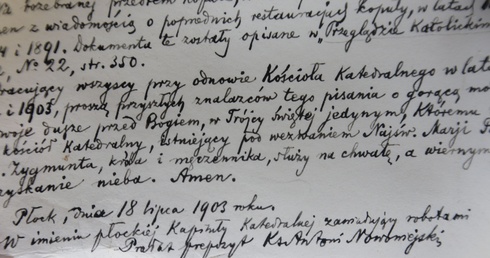 z rozebranej przedtem kopuły
z wiadomością o poprednich restauracjach kopuły, w latach
i 1891. Dokumenta te zostały opisane w „Przeglądzie Katolickim
, No 22, str. 350.
pracujący wszyscy przy odnowie Kościoła Katedralnego w lata
i 1903, proszą przyszłych znalazców tego pisania o gorącą mo
swoje dusze przed Bogiem, w Trójcy Świętej jedynym, Któremu
kościół Katedralny, istniejący pod wezwaniem Najśw. Marji P
Zygmunta, króla i męczennika, służy na chwałę, a wiernym
zyskanie nieba. Amen.
Płock, dnia 18 lipca 1903 roku.
W imieniu płockiej Kapituły Katedralnej zawiadujący robotami
Prałat prepozyt Ks. Antoni Nowowiejski